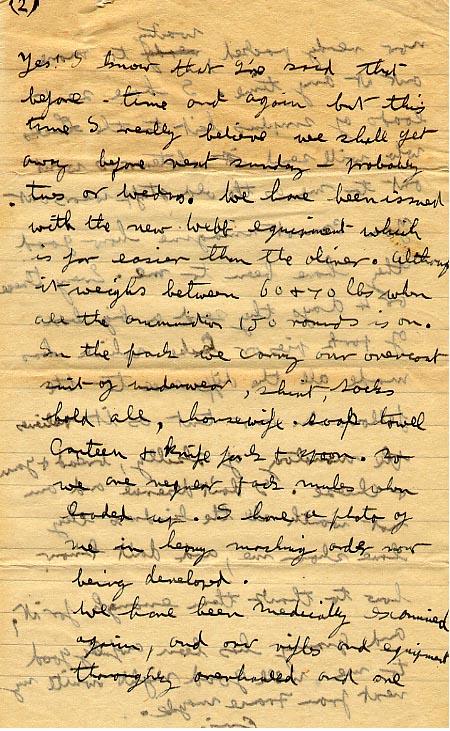 (2)
Yes! I know that I've said that
before - time and again but this
time I really believe we shall get
away before next sunday - probably
tues or weds. We have been issued
with the new Webb equipment which
is far easier than the oliver. Although
it weighs between 60 & 70 lbs when
all the ammunition 150 rounds is on.
In the pack we carry our overcoat
suit of underwear, shirt, socks
hold all, housewife. soap towel
Canteen & knife fork & spoon. So
we are regular pack. mules when
loaded up. I have a photo of
me in heavy marching order now
being developed.
We have been medically examined
again, and our rifles and equipment
thoroughly overhauled and one